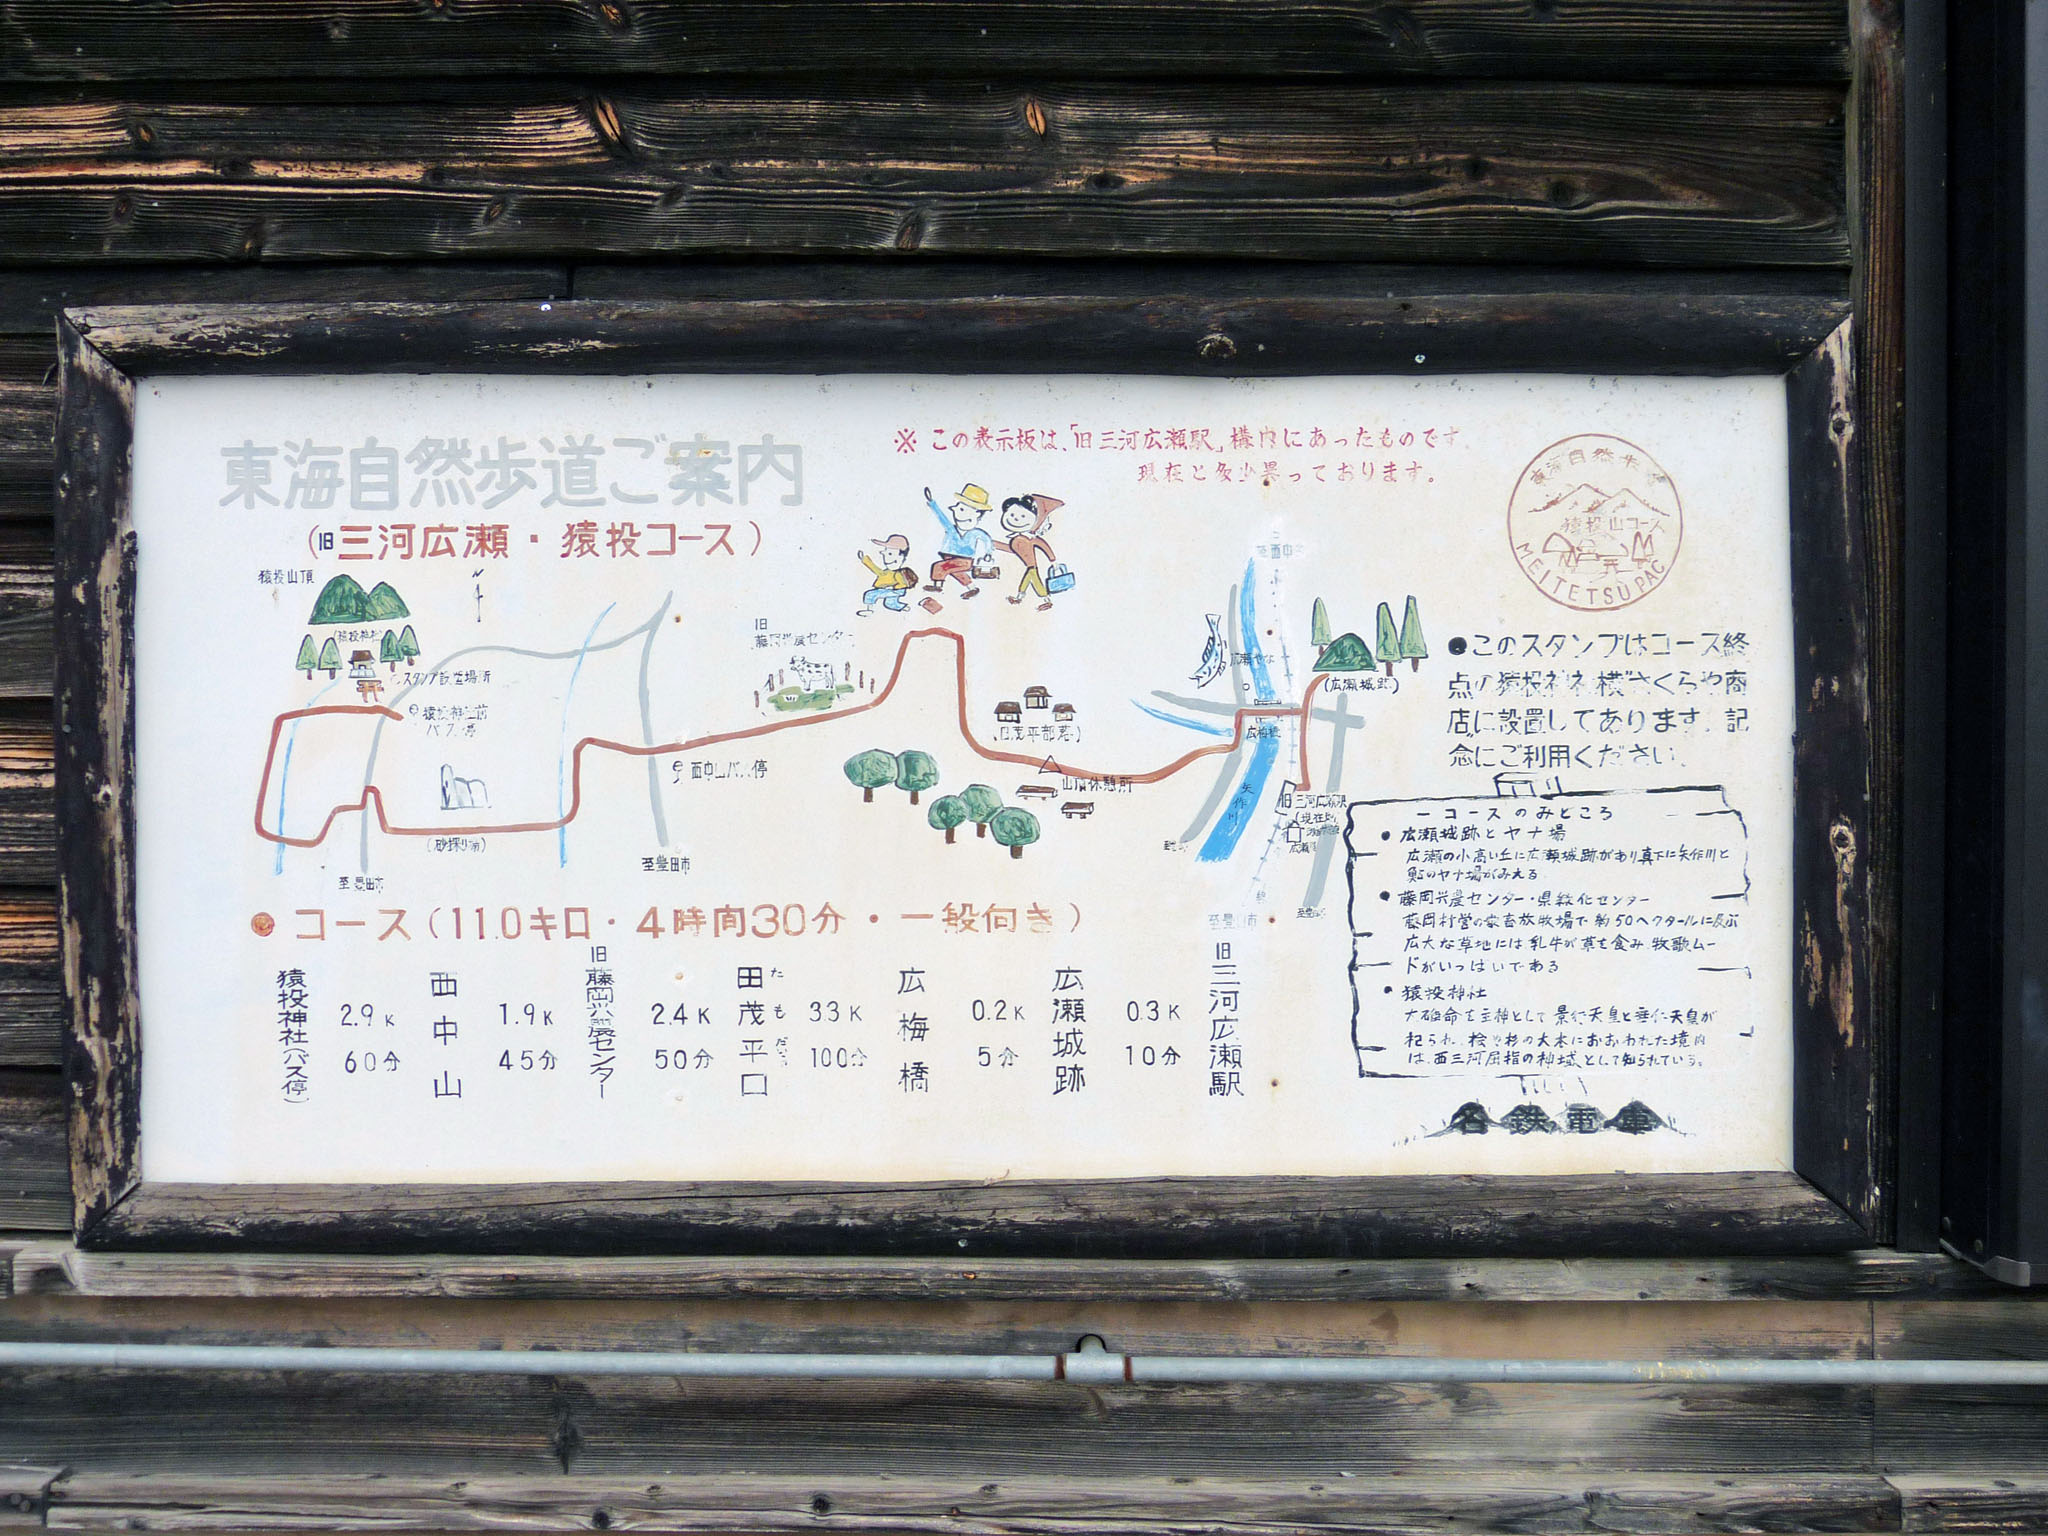 東海自然歩道ご案内
(旧三河広瀬・猿投コース)
※この表示板は、「旧三河広瀬駅」構内にあったものです。
現在と多少異っております。
東海自然歩道
猿投山コース
MEITETSU PAC
猿投山頂
N
(猿投神社)
スタンプ設置場所
猿投神社前
バス停
(砂採り場)
至豊田市
旧
藤岡興農センター
西中山バス停
至豊田市
(田茂平部落)
山庙休憩所
至西中金
広瀬やな
広梅橋
矢作川
(広瀬城跡)
旧三河広瀬駅
至豊田市
●このスタンプはコース終
点の猿投神社横"さくらや商
店"に設置してあります。記
念にご利用ください。
ーコースのみどころ
●広瀬城跡とヤナ場
広瀬の小高い丘に広瀬城跡があり真下に矢作川と
鮎のヤナ場がみえる
●藤岡興農センター・県緑化センター
藤岡村営の家畜放牧場で約50ヘクタールに及ぶ
広大な草地には乳牛が草を食み、牧歌ムー
ドがいっぱいである
●猿投神社
大碓命を主神として景行天皇と垂仁天皇が
祀られ、桧や杉の大木におおわれた境内
は、西三河屈指の神域として知られている。
名鉄電車
●コース(11.0キロ・4時間30分・一般向き)
猿投神社(バス停)
2.9K
60分
西中山
1.9K
45分
旧藤岡興農センター
2.4K
50分
田茂平口
3.3K
100分
広梅橋
0.2K
5分
広瀬城跡
0.3K
10分
旧三河広瀬駅